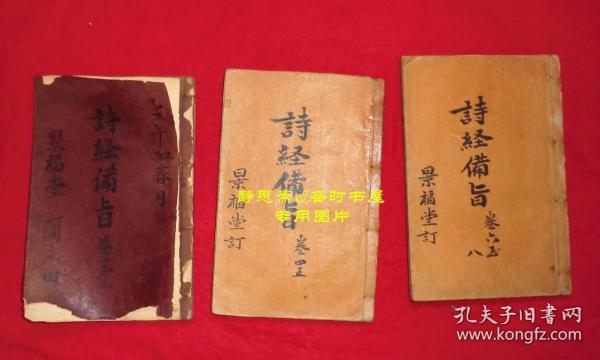 年 春月
詩経備旨 卷
景福堂
詩経備旨 卷四五
景福堂訂
詩経備旨 卷六至
八
景福堂訂
静思斋以奋时书屋
专用图片
孔夫子旧书网
kongfz.com